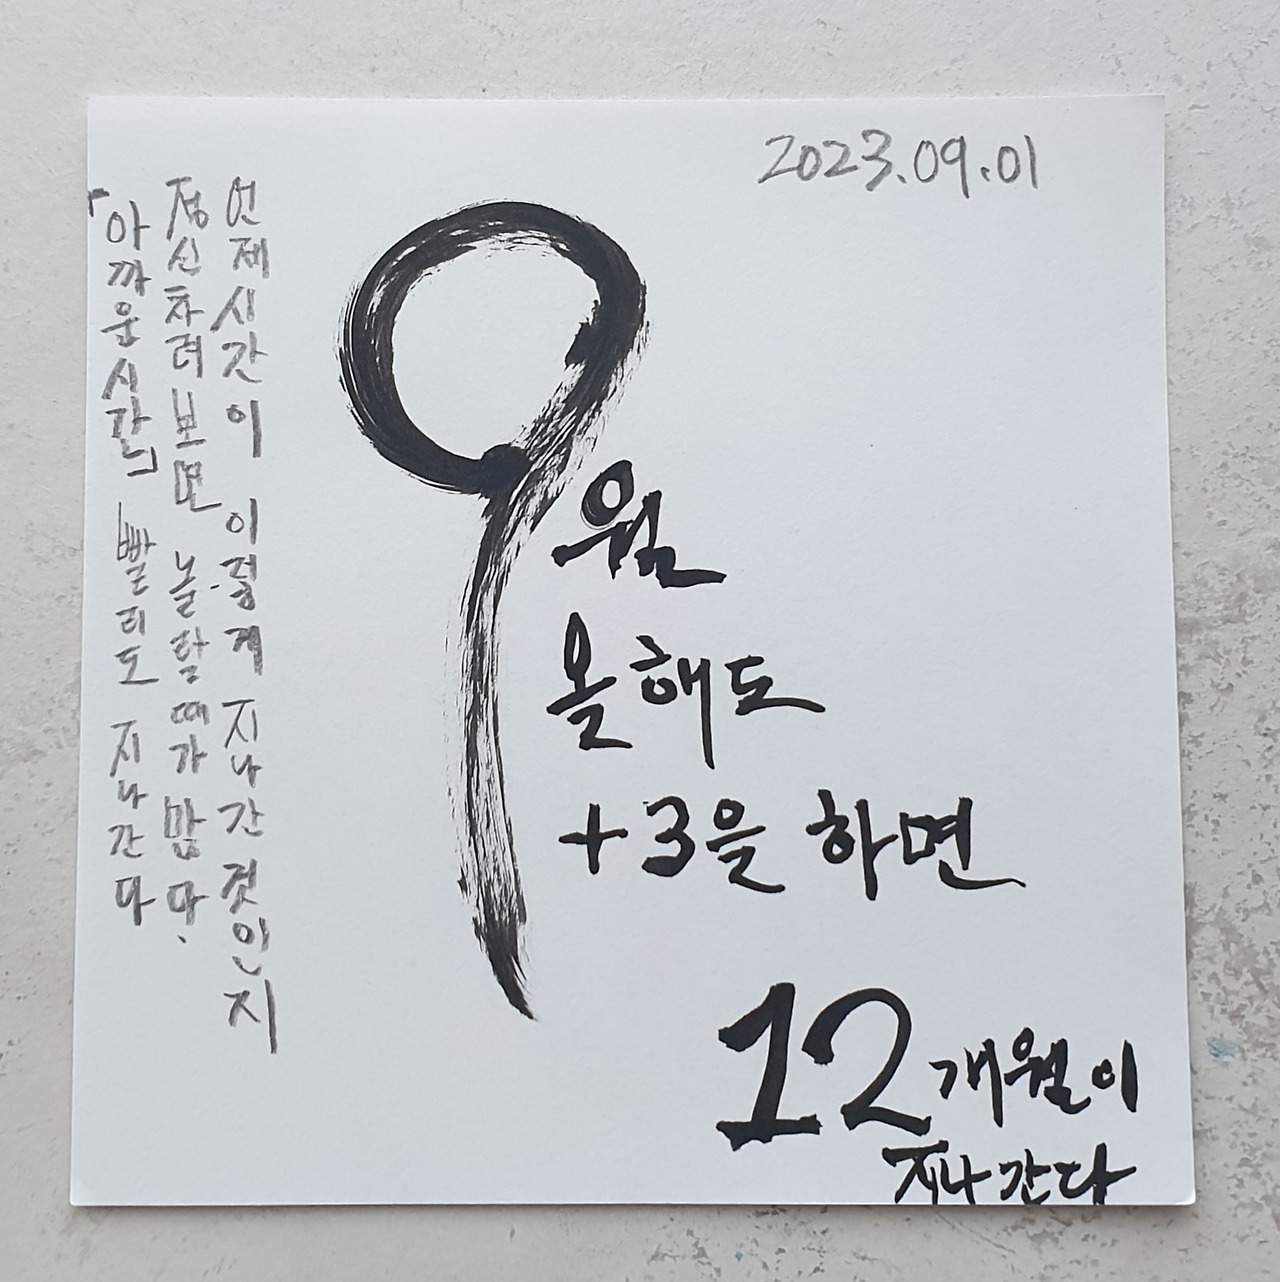 2023.09.01
9월
올해도
+3을 하면
12개월이
지나간다
언제시간이 이렇게 지나간것인지
정신차려보면 놀랄때가 많다.
"아까운시간" 빨리도 지나간다